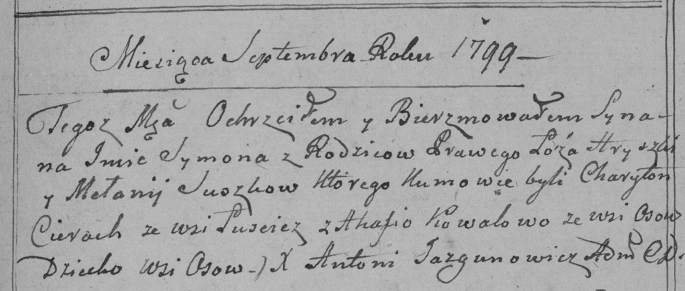 Miesiąca Septembra Roku 1799
Tegoż Mca Ochrzciłem y Bierzmowałem Syna
na Imie Symona z Rodzicow Prawego Łoża Hryszki
y Mełanij Suszkow Którego Kumowie byli Charyton
Cierach ze wsi z Ahafio Kowalowo ze wsi Osow
Dziecko wsi Osow X Antoni Jazgunowicz Adm